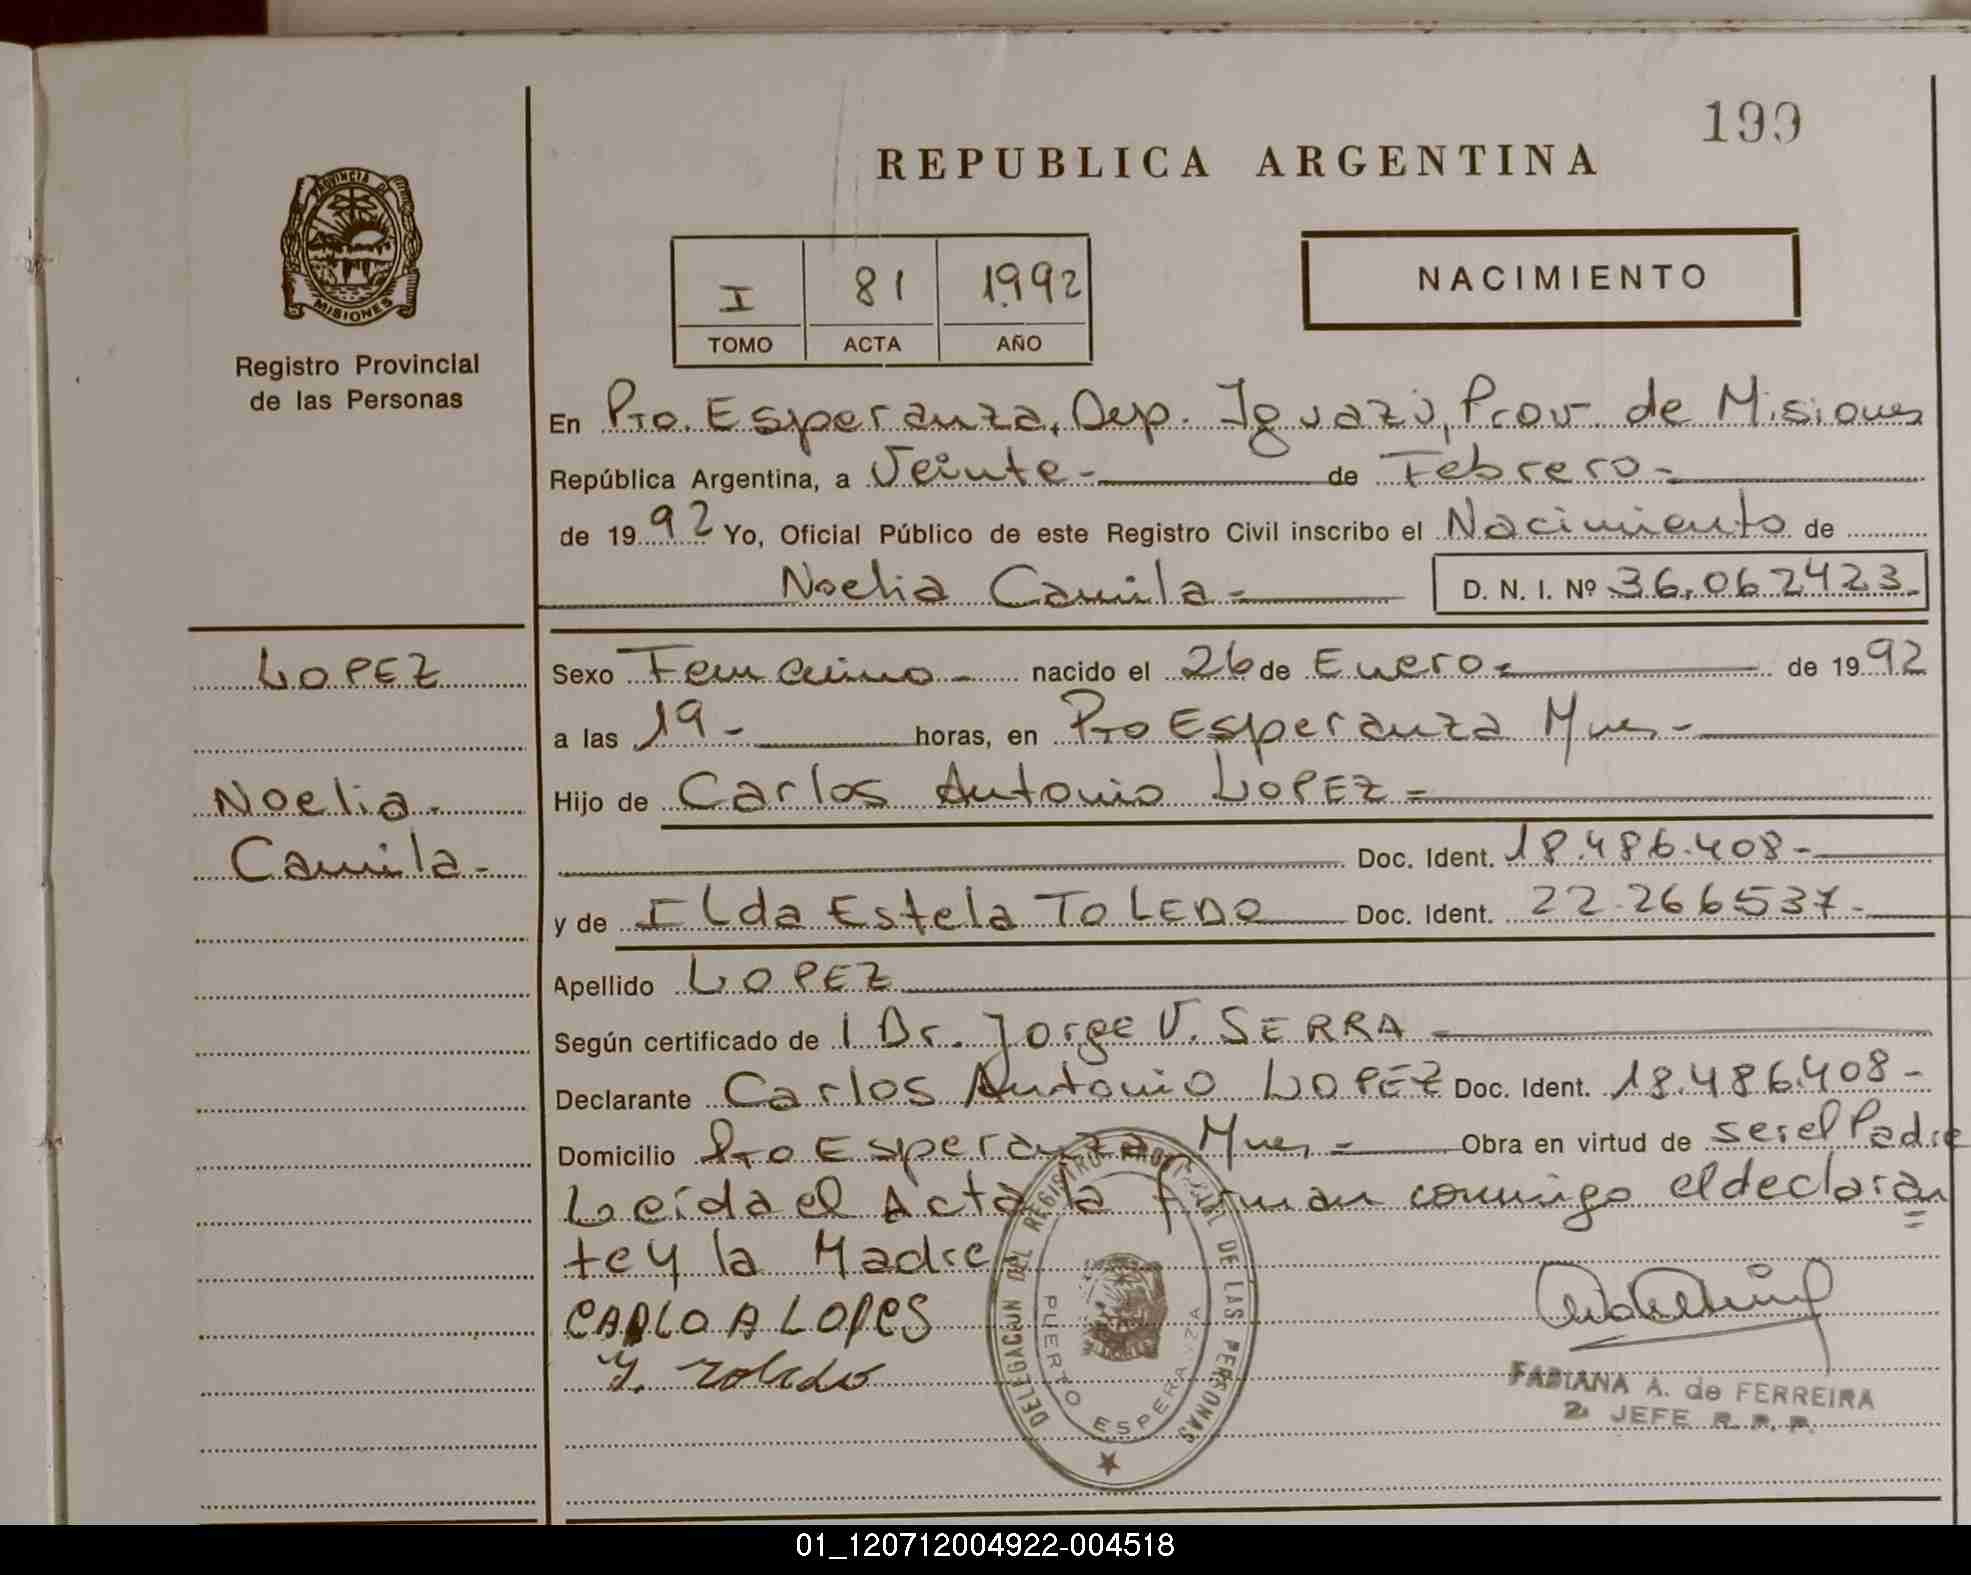 199
REPUBLICA ARGENTINA
PROVINCIA DE
MISIONES
Registro Provincial
de las Personas
I 81 1992
TOMO ACTA AÑO
NACIMIENTO
En Pto. Esperanza, Dep. Iguazú, Prov. de Misiones
República Argentina, a Veinte- de Febrero-
de 1992 Yo, Oficial Público de este Registro Civil inscribo el Nacimiento de
Noelia Camila- D. N. I. Nº 36.062423-
LOPEZ
Noelia.
Camila-
Sexo Femenino- nacido el 26 de Enero- de 1992
a las 19- horas, en Pto Esperanza Mnes-
Hijo de Carlos Antonio LOPEZ=
Doc. Ident. 18.486.408-
y de Ilda Estela TOLEDO Doc. Ident. 22.266537-
Apellido LOPEZ
Según certificado de l Dr. Jorge V. SERRA
Declarante Carlos Antonio LOPEZ Doc. Ident. 18.486.408-
Domicilio Pto Esperanza Mnes= Obra en virtud de ser el Padre
Leída el Acta la firman conmigo el declaran
te y la Madre
CARLO A LOPES
Y. Toledo
DELEGACION DEL REGISTRO PROVINCIAL DE LAS PERSONAS
PUERTO ESPERANZA
FABIANA A. de FERREIRA
2 JEFE R. P. P.
01_120712004922-004518